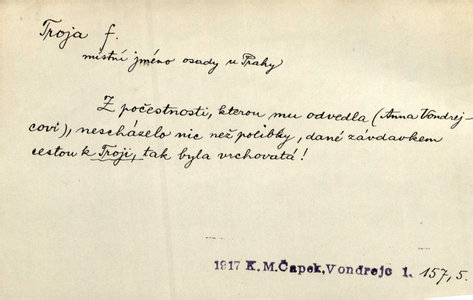 Troja f.
místní jméno osady u Prahy
Z počestnosti, kterou mu odvedla (Anna Vondrej-
covi), nescházelo nic než polibky, dané závdavkem
cestou k Troji, tak byla vrchovatá!
1917 K.M.Čapek, Vondrejc 1. 157, 5.